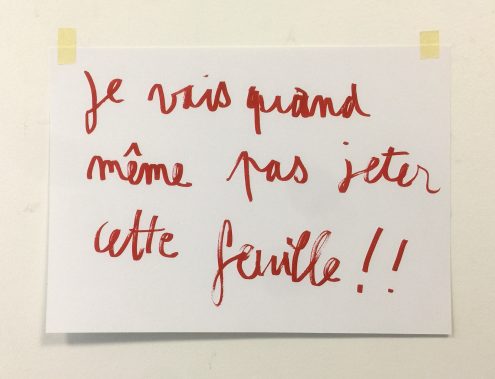 Je vais quand
même pas jeter
cette feuille !!